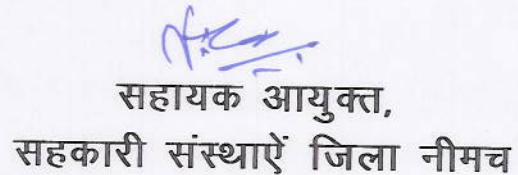 सहायक आयुक्त,
सहकारी संस्थाऐं जिला नीमच